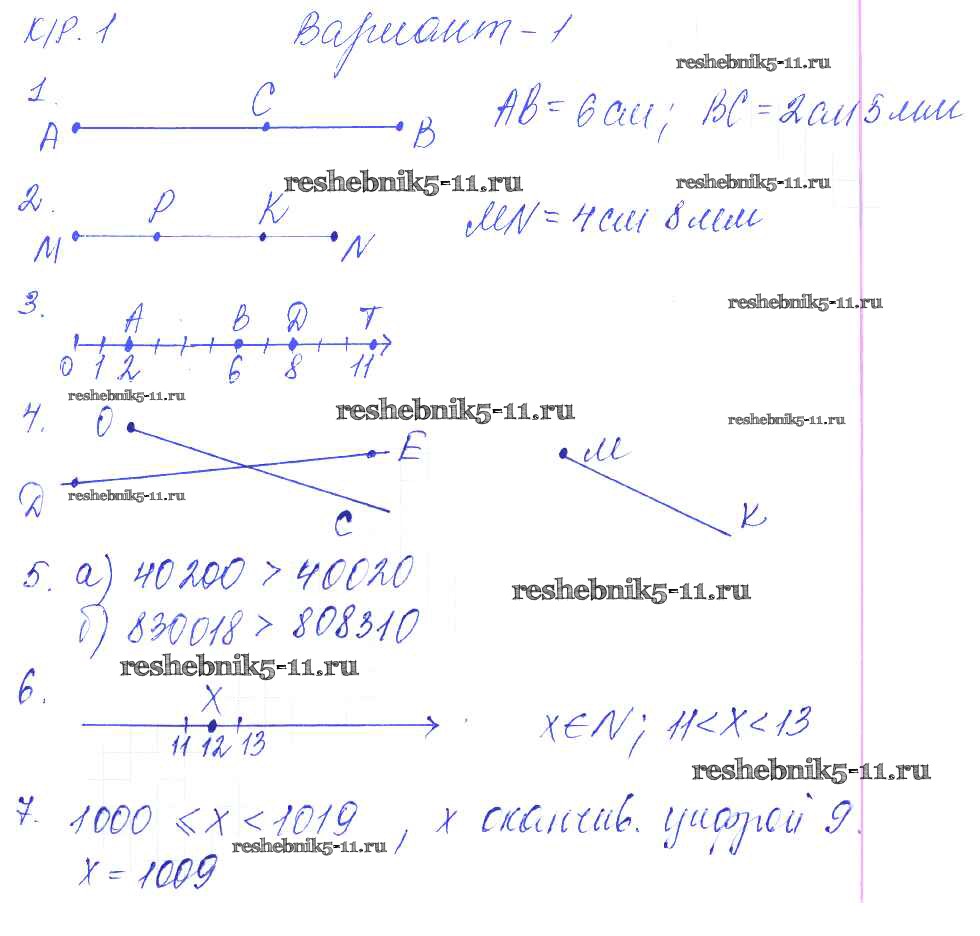 К/Р. 1 Вариант-1
reshebnik5-11.ru
1. A C B AB = 6 см; BC = 2 см 5 мм
reshebnik5-11.ru reshebnik5-11.ru
2. M P K N MN = 4 см 8 мм
reshebnik5-11.ru
3. A B D T
0 1 2 6 8 11
reshebnik5-11.ru
reshebnik5-11.ru
reshebnik5-11.ru
4. O E M
D C K
reshebnik5-11.ru
5. а) 40200 > 40020
reshebnik5-11.ru
б) 830018 > 808310
reshebnik5-11.ru
6. X
11 12 13 x∈N; 11<X<13
reshebnik5-11.ru
7. 1000 ≤ X < 1019, x оканчив. цифрой 9.
reshebnik5-11.ru
X = 1009